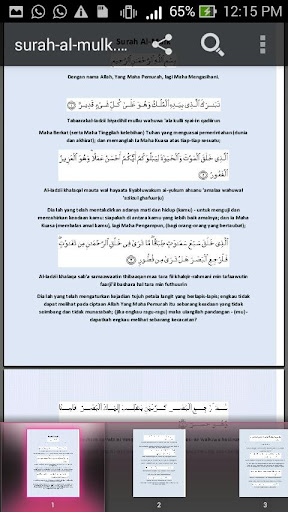 65% 12:15 PM
surah-al-mulk....
Surah Al-Mulk
بِسْمِ اللَّهِ الرَّحْمَٰنِ الرَّحِيمِ
Dengan nama Allah, Yang Maha Pemurah, lagi Maha Mengasihani.
تَبَارَكَ الَّذِي بِيَدِهِ الْمُلْكُ وَهُوَ عَلَىٰ كُلِّ شَيْءٍ قَدِيرٌ
Tabaarakal-ladzii biyadihil mulku wahuwa 'ala kulli syai-in qadiirun
Maha Berkat (serta Maha Tinggilah kelebihan) Tuhan yang menguasai pemerintahan (dunia
dan akhirat); dan memanglah Ia Maha Kuasa atas tiap-tiap sesuatu;
الَّذِي خَلَقَ الْمَوْتَ وَالْحَيَاةَ لِيَبْلُوَكُمْ أَيُّكُمْ أَحْسَنُ عَمَلًا وَهُوَ الْعَزِيزُ
الْغَفُورُ
Al-ladzii khalaqal mauta wal hayaata liyabluwakum ai-yukum ahsanu 'amalaa wahuwal
'aziizul ghafuur(u)
Dia lah yang telah mentakdirkan adanya mati dan hidup (kamu) - untuk menguji dan
menzahirkan keadaan kamu: siapakah di antara kamu yang lebih baik amalnya; dan Ia Maha
Kuasa (membalas amal kamu), lagi Maha Pengampun, (bagi orang-orang yang bertaubat);
الَّذِي خَلَقَ سَبْعَ سَمَاوَاتٍ طِبَاقًا مَا تَرَىٰ فِي خَلْقِ الرَّحْمَٰنِ مِنْ تَفَاوُتٍ
فَارْجِعِ الْبَصَرَ هَلْ تَرَىٰ مِنْ فُطُورٍ
Al-ladzii khalaqa sab'a samaawaatin thibaaqan maa tara fii khalqir-rahmani min tafaawutin
faarji'il bashara hal tara min futhuurin
Dia lah yang telah mengaturkan kejadian tujuh petala langit yang berlapis-lapis; engkau tidak
dapat melihat pada ciptaan Allah Yang Maha Pemurah itu sebarang keadaan yang tidak
seimbang dan tidak munasabah; (jika engkau ragu-ragu) maka ulangilah pandangan - (mu) -
dapatkah engkau melihat sebarang kecacatan?
ثُمَّ ارْجِعِ الْبَصَرَ كَرَّتَيْنِ يَنْقَلِبْ إِلَيْكَ الْبَصَرُ خَاسِئًا
وَهُوَ حَسِيرٌ
1 2 3